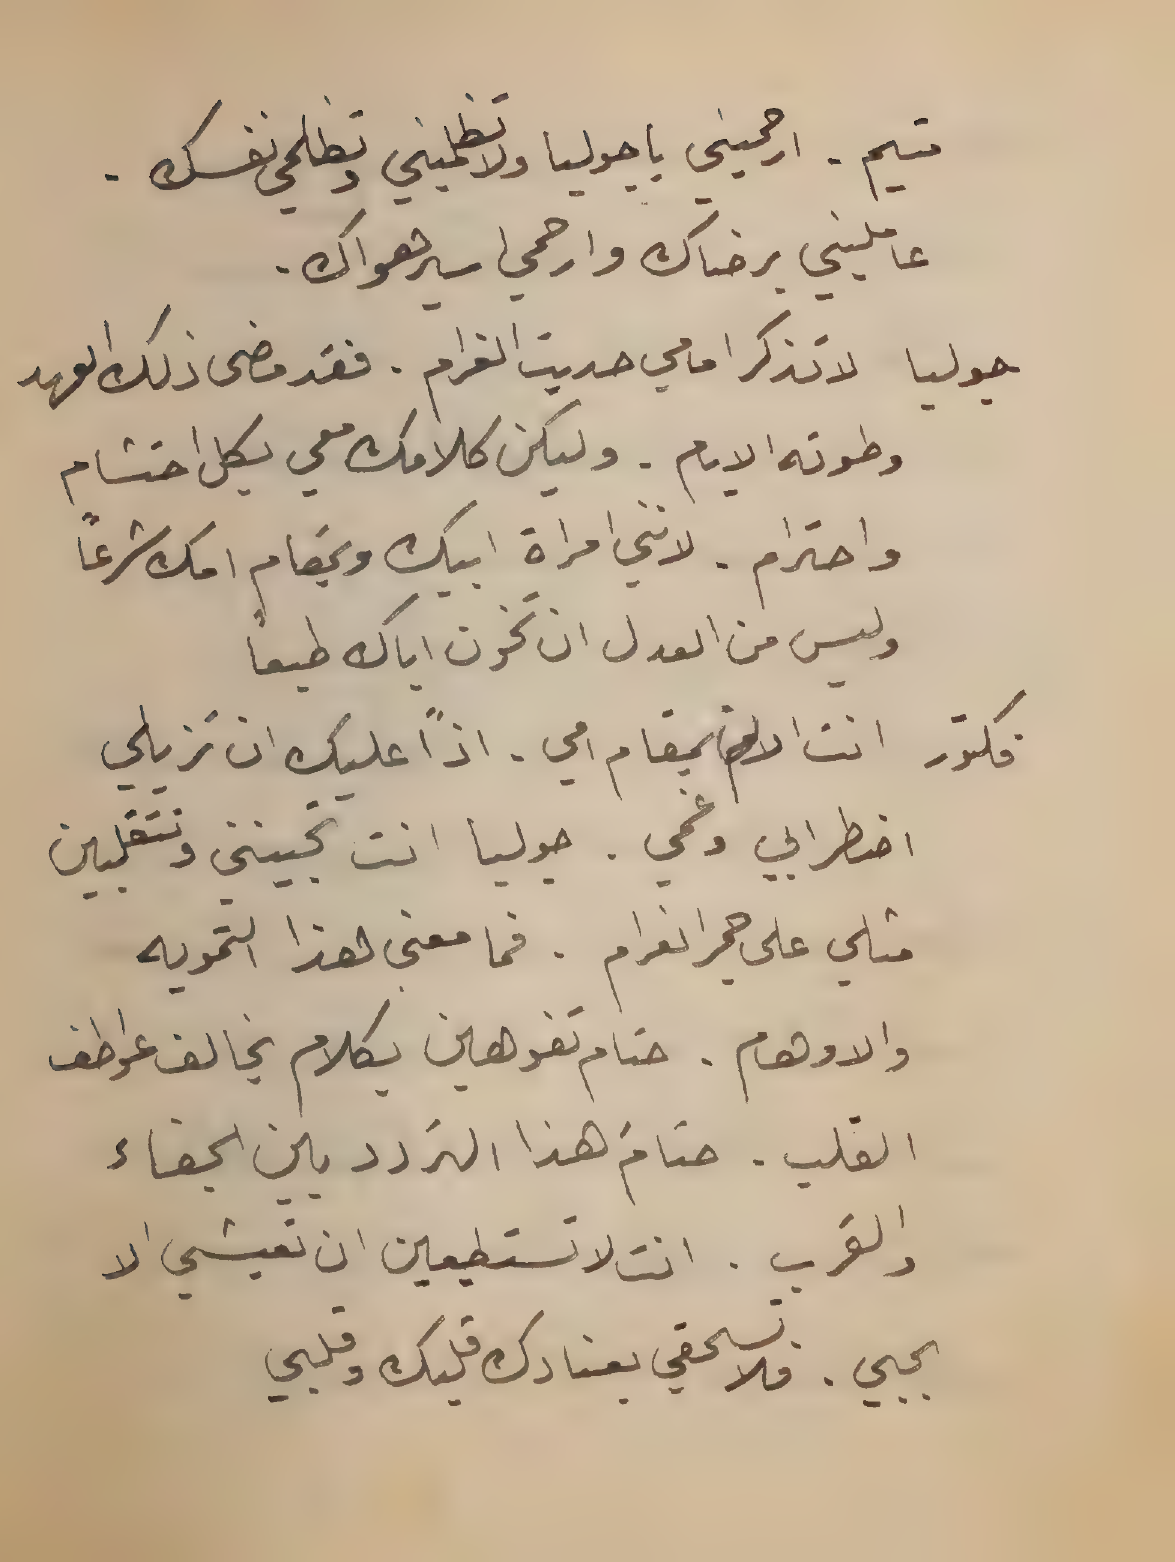 متيم . ارحميني يا جوليا ولا تظلميني وتظلمي نفسك .
عامليني برضاك وارحمي اسير هواك .
جوليا لا تذكر امامي حديث الغرام . فقد مضى ذلك العهد
وطوته الايام . وليكن كلامك معي بكل احتشام
واحترام . لانني امراة ابيك وبمقام امك شرعاً
وليس من العدل ان تخون اباك طبعاً
فكتور انت الان بمقام امي . اذاً عليك ان تزيلي
اضطرابي وغمي . جوليا انت تحبينني وتتقلبين
مثلي على جمر الغرام . فما معنى هذا التمويه
والاوهام . حتام تفوهين بكلام يخالف عواطف
القلب . حتامَ هذا التردد بين الجفاء
والقرب . انت لا تستطيعين ان تعيشي الا
بحبي . فلا تسحقي بعنادك قلبك وقلبي